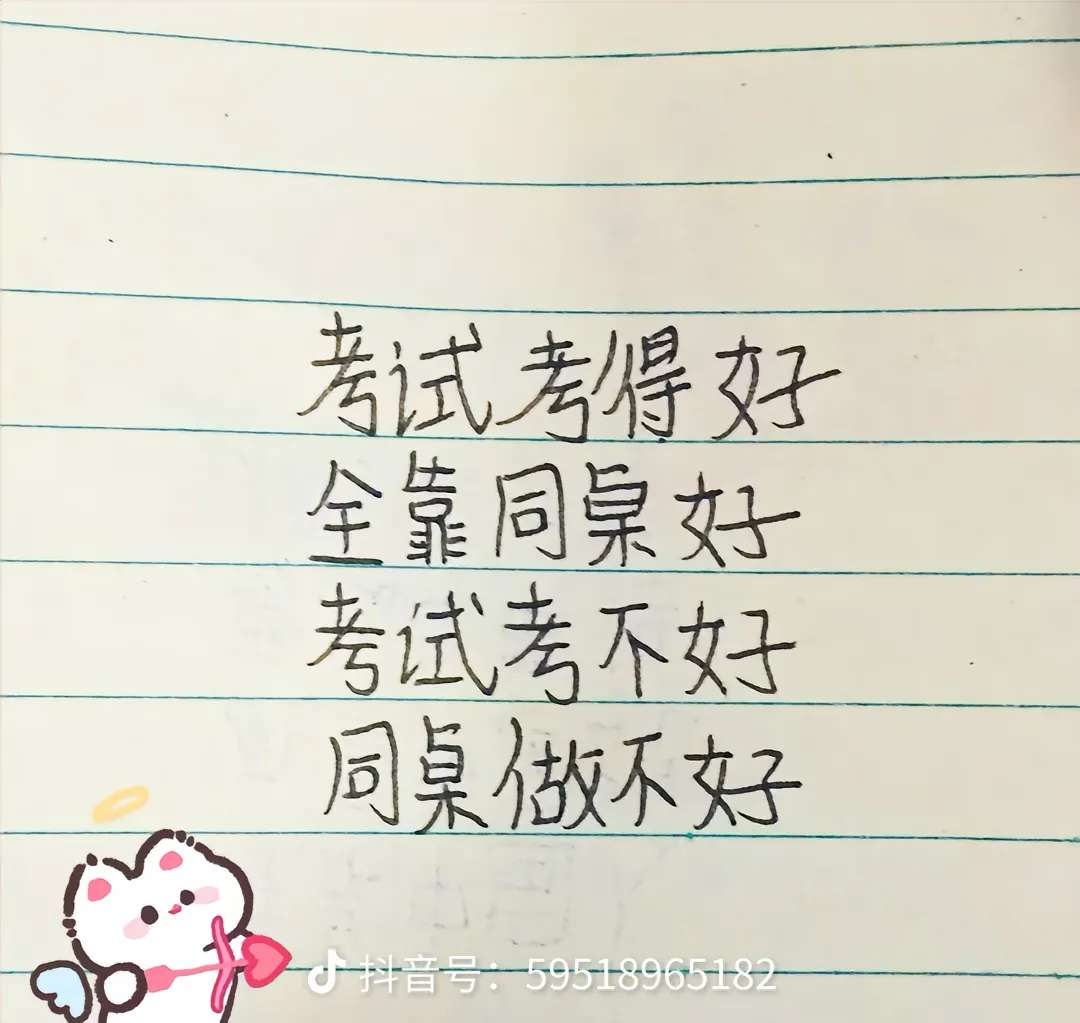 考试考得好
全靠同桌好
考试考不好
同桌做不好
抖音号：59518965182